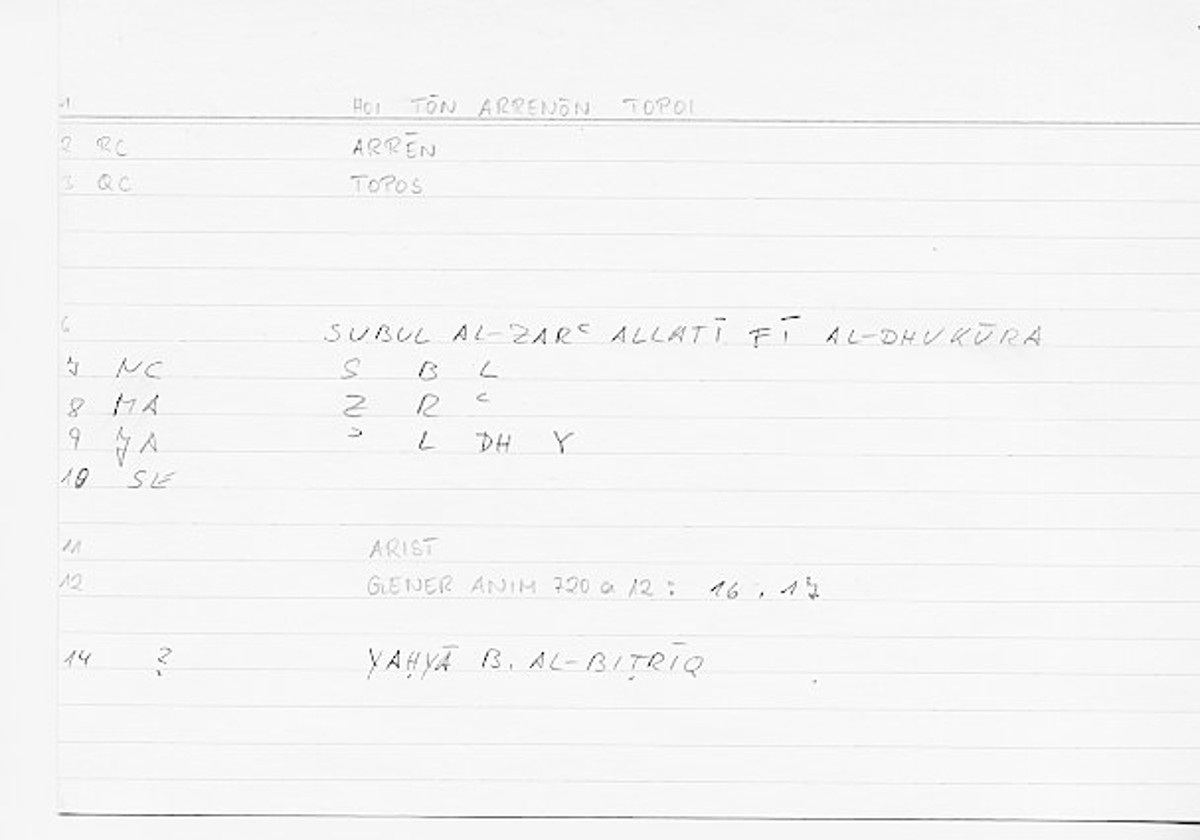 1 HOI TŌN ARRENŌN TOPOI
2 RC ARRĒN
3 QC TOPOS
6 SUBUL AL-ZARʿ ALLATĪ FĪ AL-DHUKŪRA
7 NC S B L
8 MA Z R ʿ
9 JA ʾ L DH Y
10 SE
11 ARIST
12 GENER ANIM 720 a 12 : 16 . 17
14 ? YAḤYĀ B. AL-BIṬRĪQ